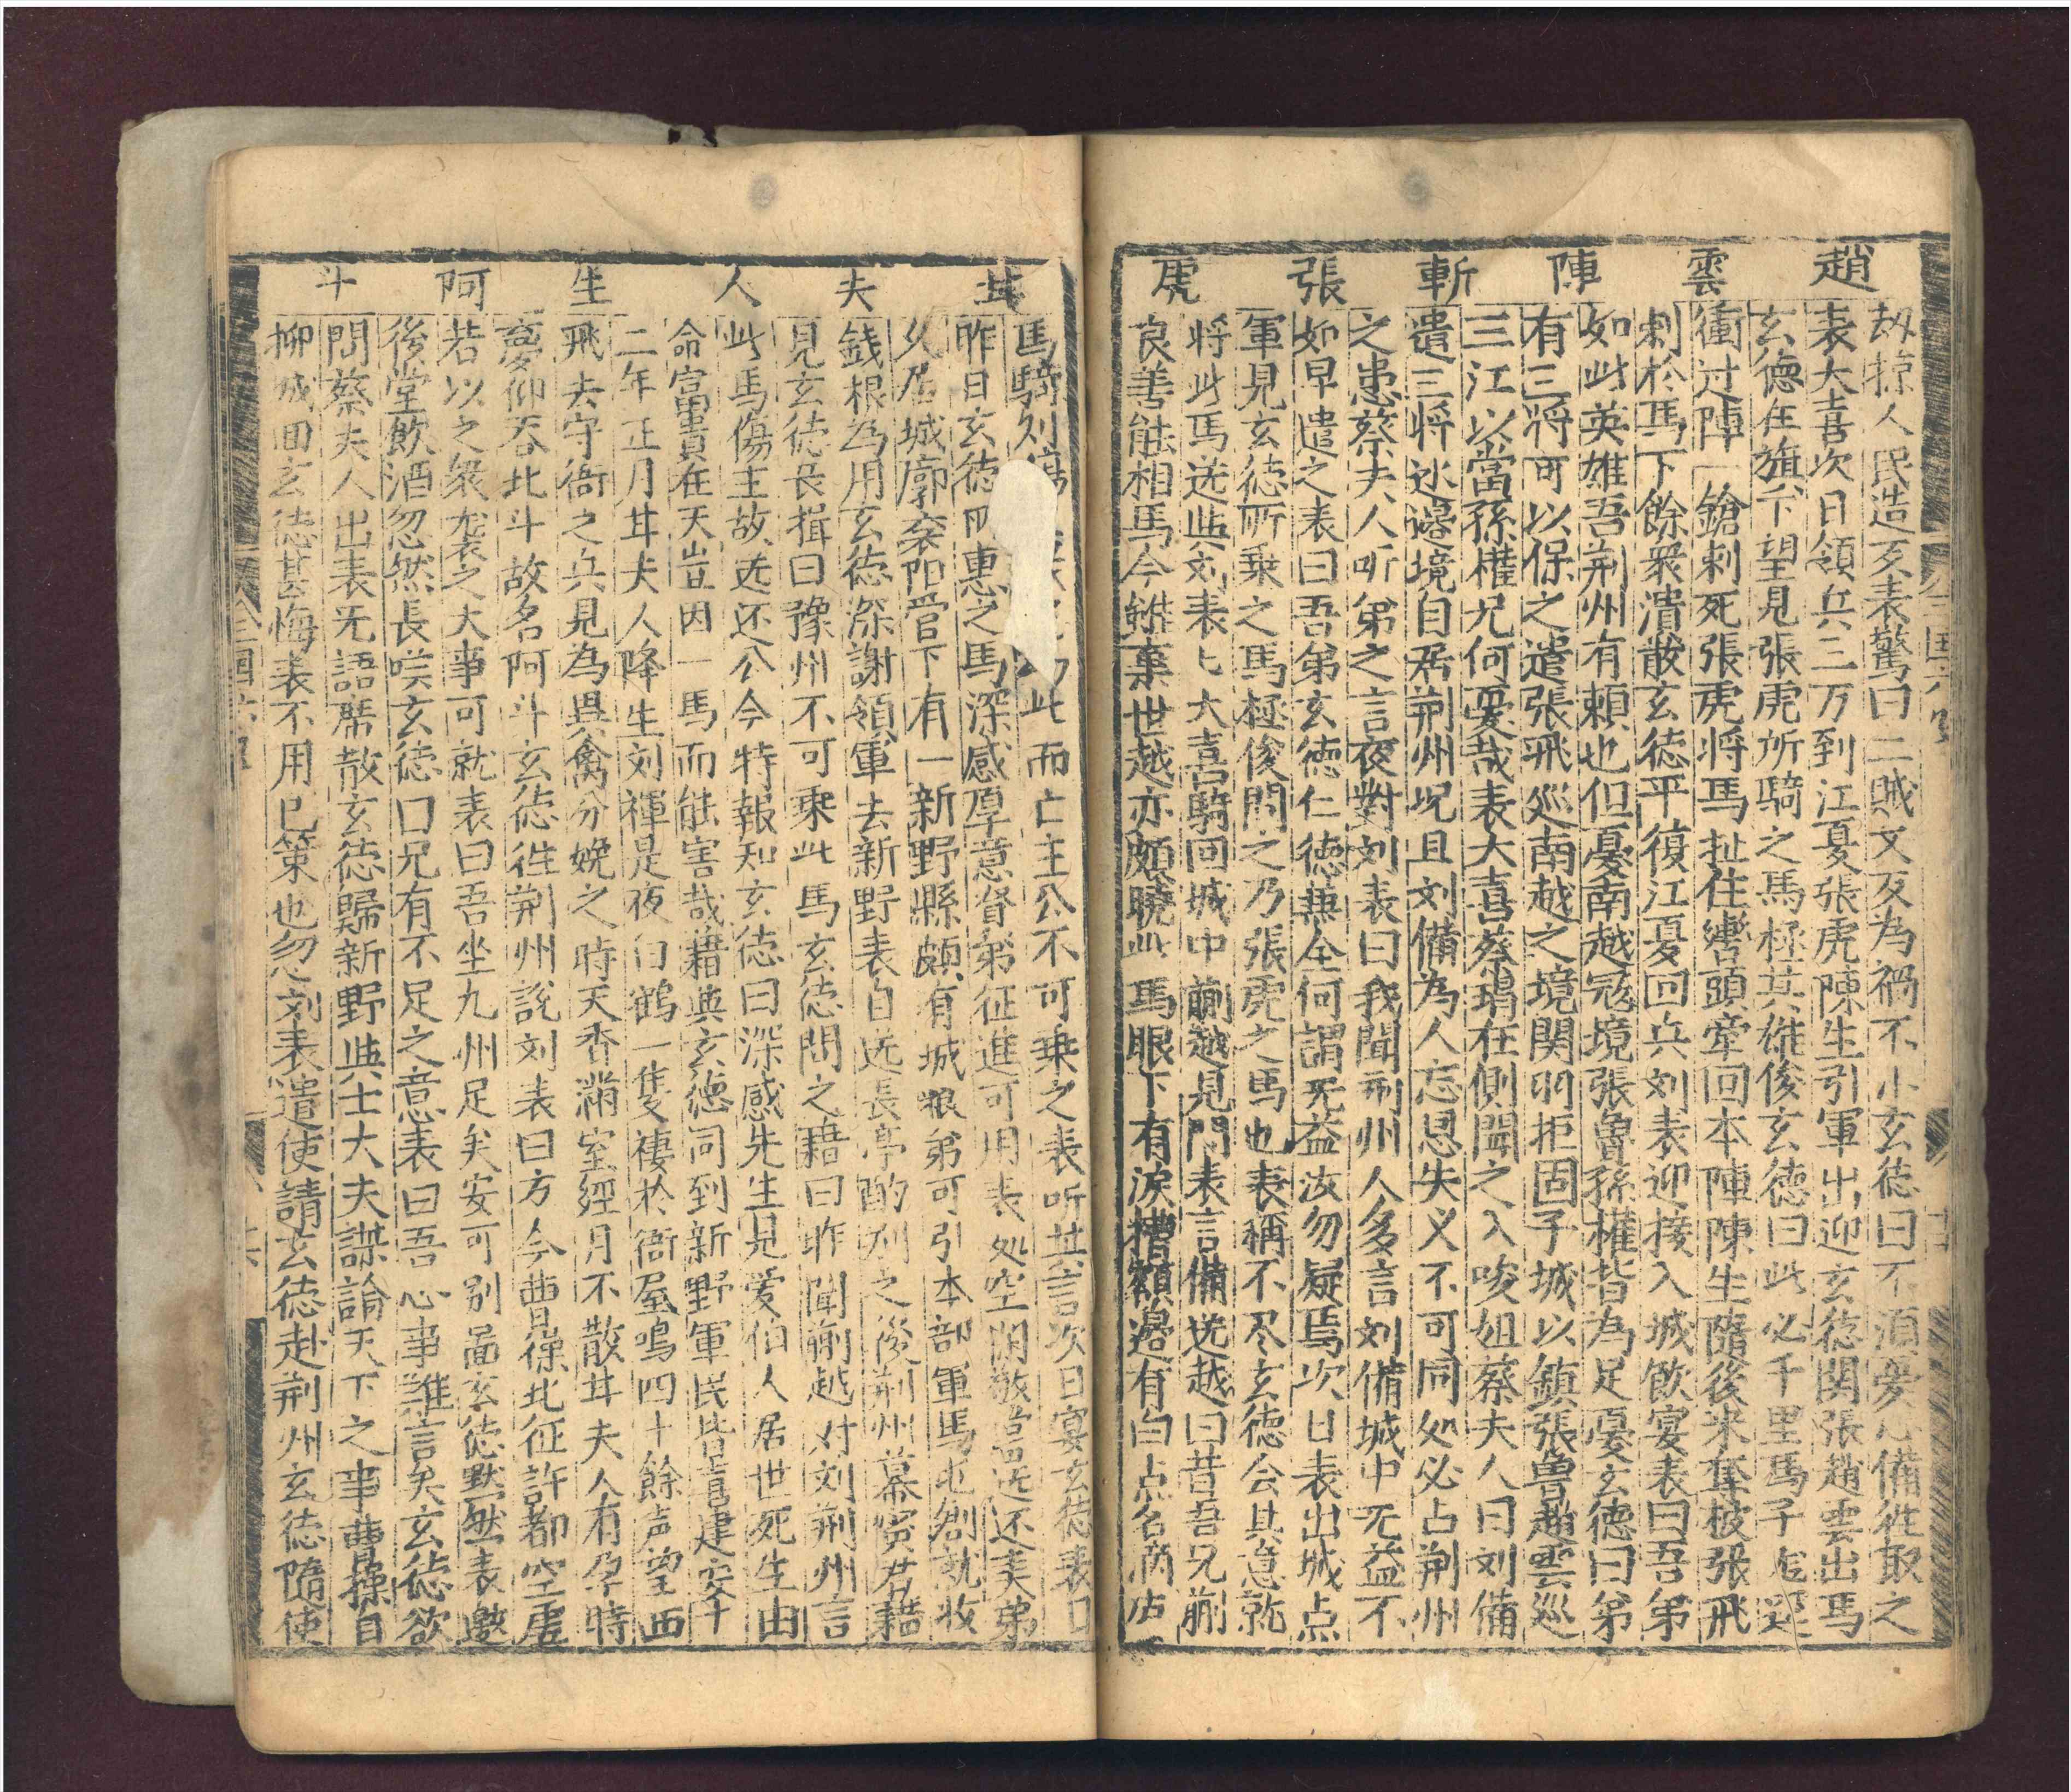 趙雲陣斬張虎
刼掠人民造反表驚曰二賊又反為禍不小玄德曰不須憂心備徃取之
表大喜次日領兵三万到江夏張虎陳生引軍出迎玄德関張趙雲出馬
玄德在旗下望見張虎所騎之馬極其雄俊玄德曰此必千里馬子龙逕
衝过陣一鎗刺死張虎将馬扯住轡頭牽回本陣陳生隨後来奪被張飛
刺於馬下餘衆潰散玄德平復江夏回兵刘表迎接入城飲宴表曰吾弟
如此英雄吾荆州有賴也但憂南越冦境張魯孫權皆為足憂玄德曰弟
有三将可以保之遣張飛廵南越之境関羽拒固子城以鎮張魯趙雲廵
三江以當孫權兄何憂哉表大喜蔡瑁在側聞之入唆姐蔡夫人曰刘備
遣三将廵邉境自居荆州况且刘備為人忘恩失义不可同处必占荆州
之患蔡夫人听弟之言夜對刘表曰我聞荆州人多言刘備城中无益不
如早遣之表曰吾弟玄德仁德兼全何謂无益汝勿疑焉次日表出城点
軍見玄德所乗之馬極俊問之乃張虎之馬也表稱不尽玄德会其意就
将此馬送與刘表匕大喜騎回城中蒯越見問表言備送越曰昔吾兄蒯
良善能相馬今雖棄世越亦頗曉此馬眼下有淚槽額邉有白点名的卢
其夫人生阿斗
馬騎则 此而亡主公不可乗之表听其言次日宴玄德表曰
昨日玄德所惠之馬深感厚意督弟征進可用表处空閑敬當送还美弟
久居城廓襄阳管下有一新野縣頗有城粮弟可引本部軍馬屯劄就收
錢根為用玄德深謝領軍去新野表自送長亭酌别之後荆州幕賓君藉
見玄德長揖曰豫州不可乗此馬玄德問之藉曰昨聞蒯越对刘荆州言
此馬傷主故送还公今特報知玄德曰深感先生見爱伯人居世死生由
命富貴在天豈因一馬而能害哉藉與玄德同到新野軍民皆喜建安十
二年正月甘夫人降生刘禪是夜白鶴一隻棲於衙屋鳴四十餘声望西
飛去守衙之兵見為異禽分娩之時天香滿室經月不散甘夫人有孕時
夢仰吞北斗故名阿斗玄德徃荆州說刘表曰方今曹操北征許都空虛
若以之衆袭之大事可就表曰吾坐九州足矣安可别啚玄德默然表邀
後堂飲酒忽然長嘆玄德曰兄有不足之意表曰吾心事难言矣玄德欲
問蔡夫人出表无語席散玄德歸新野與士大夫謀論天下之事曹操自
柳城回玄德甚悔表不用已策也忽刘表遣使請玄德赴荆州玄德隨使